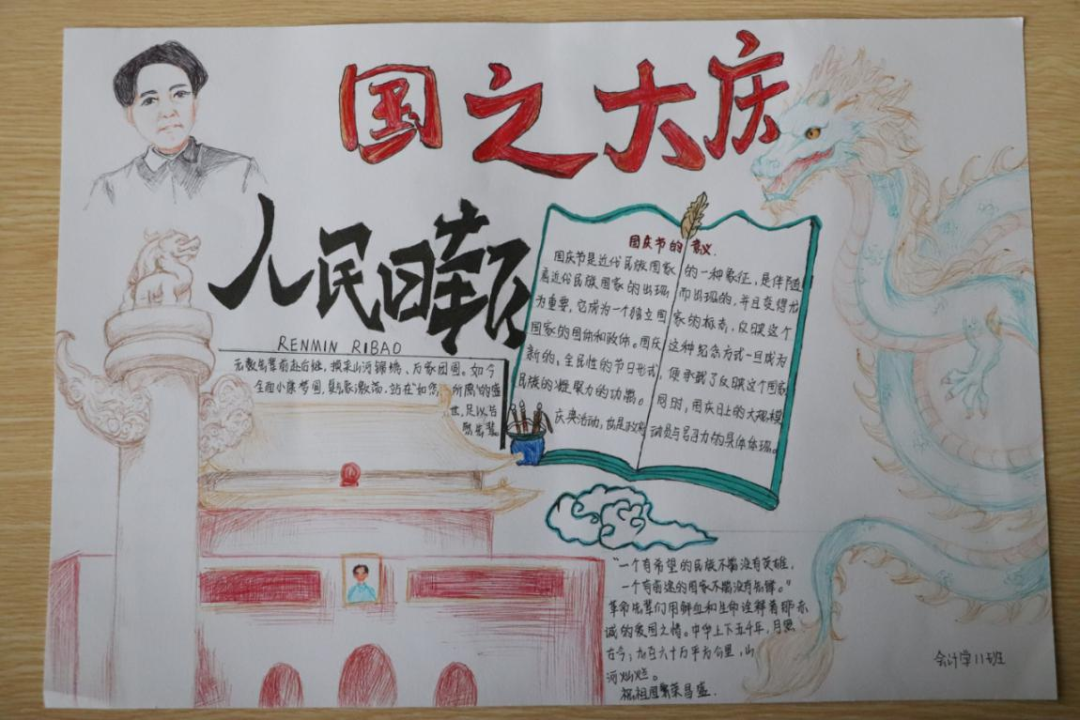 国之大庆
人民日報
RENMIN RIBAO
无数先辈前赴后继，换来山河锦绣、万家团圆。如今
全面小康梦圆，
所愿"的盛
世，足以告
慰先辈
国庆节的意义.
国庆节是近代民族国家的一种象征，是伴随
着近代民族国家的出现而出现的，并且变得尤
为重要。它成为一个独立国家的标志，反映这个
国家的国体和政体。国庆这种纪念方式一旦成为
新的、全民性的节日形式，便承载了反映这个国家
民族的凝聚力的功能。同时，国庆日上的大规模
庆典活动，也是政府动员与号召力的具体体现。
"一个有希望的民族不能没有英雄，
一个有前途的国家不能没有先锋。"
革命先辈们用鲜血和生命诠释着那赤
诚的爱国之情。中华上下五千年，月照
古今；九百六十万平方公里，山
河灿烂。
祝祖国繁荣昌盛.
会计学11班